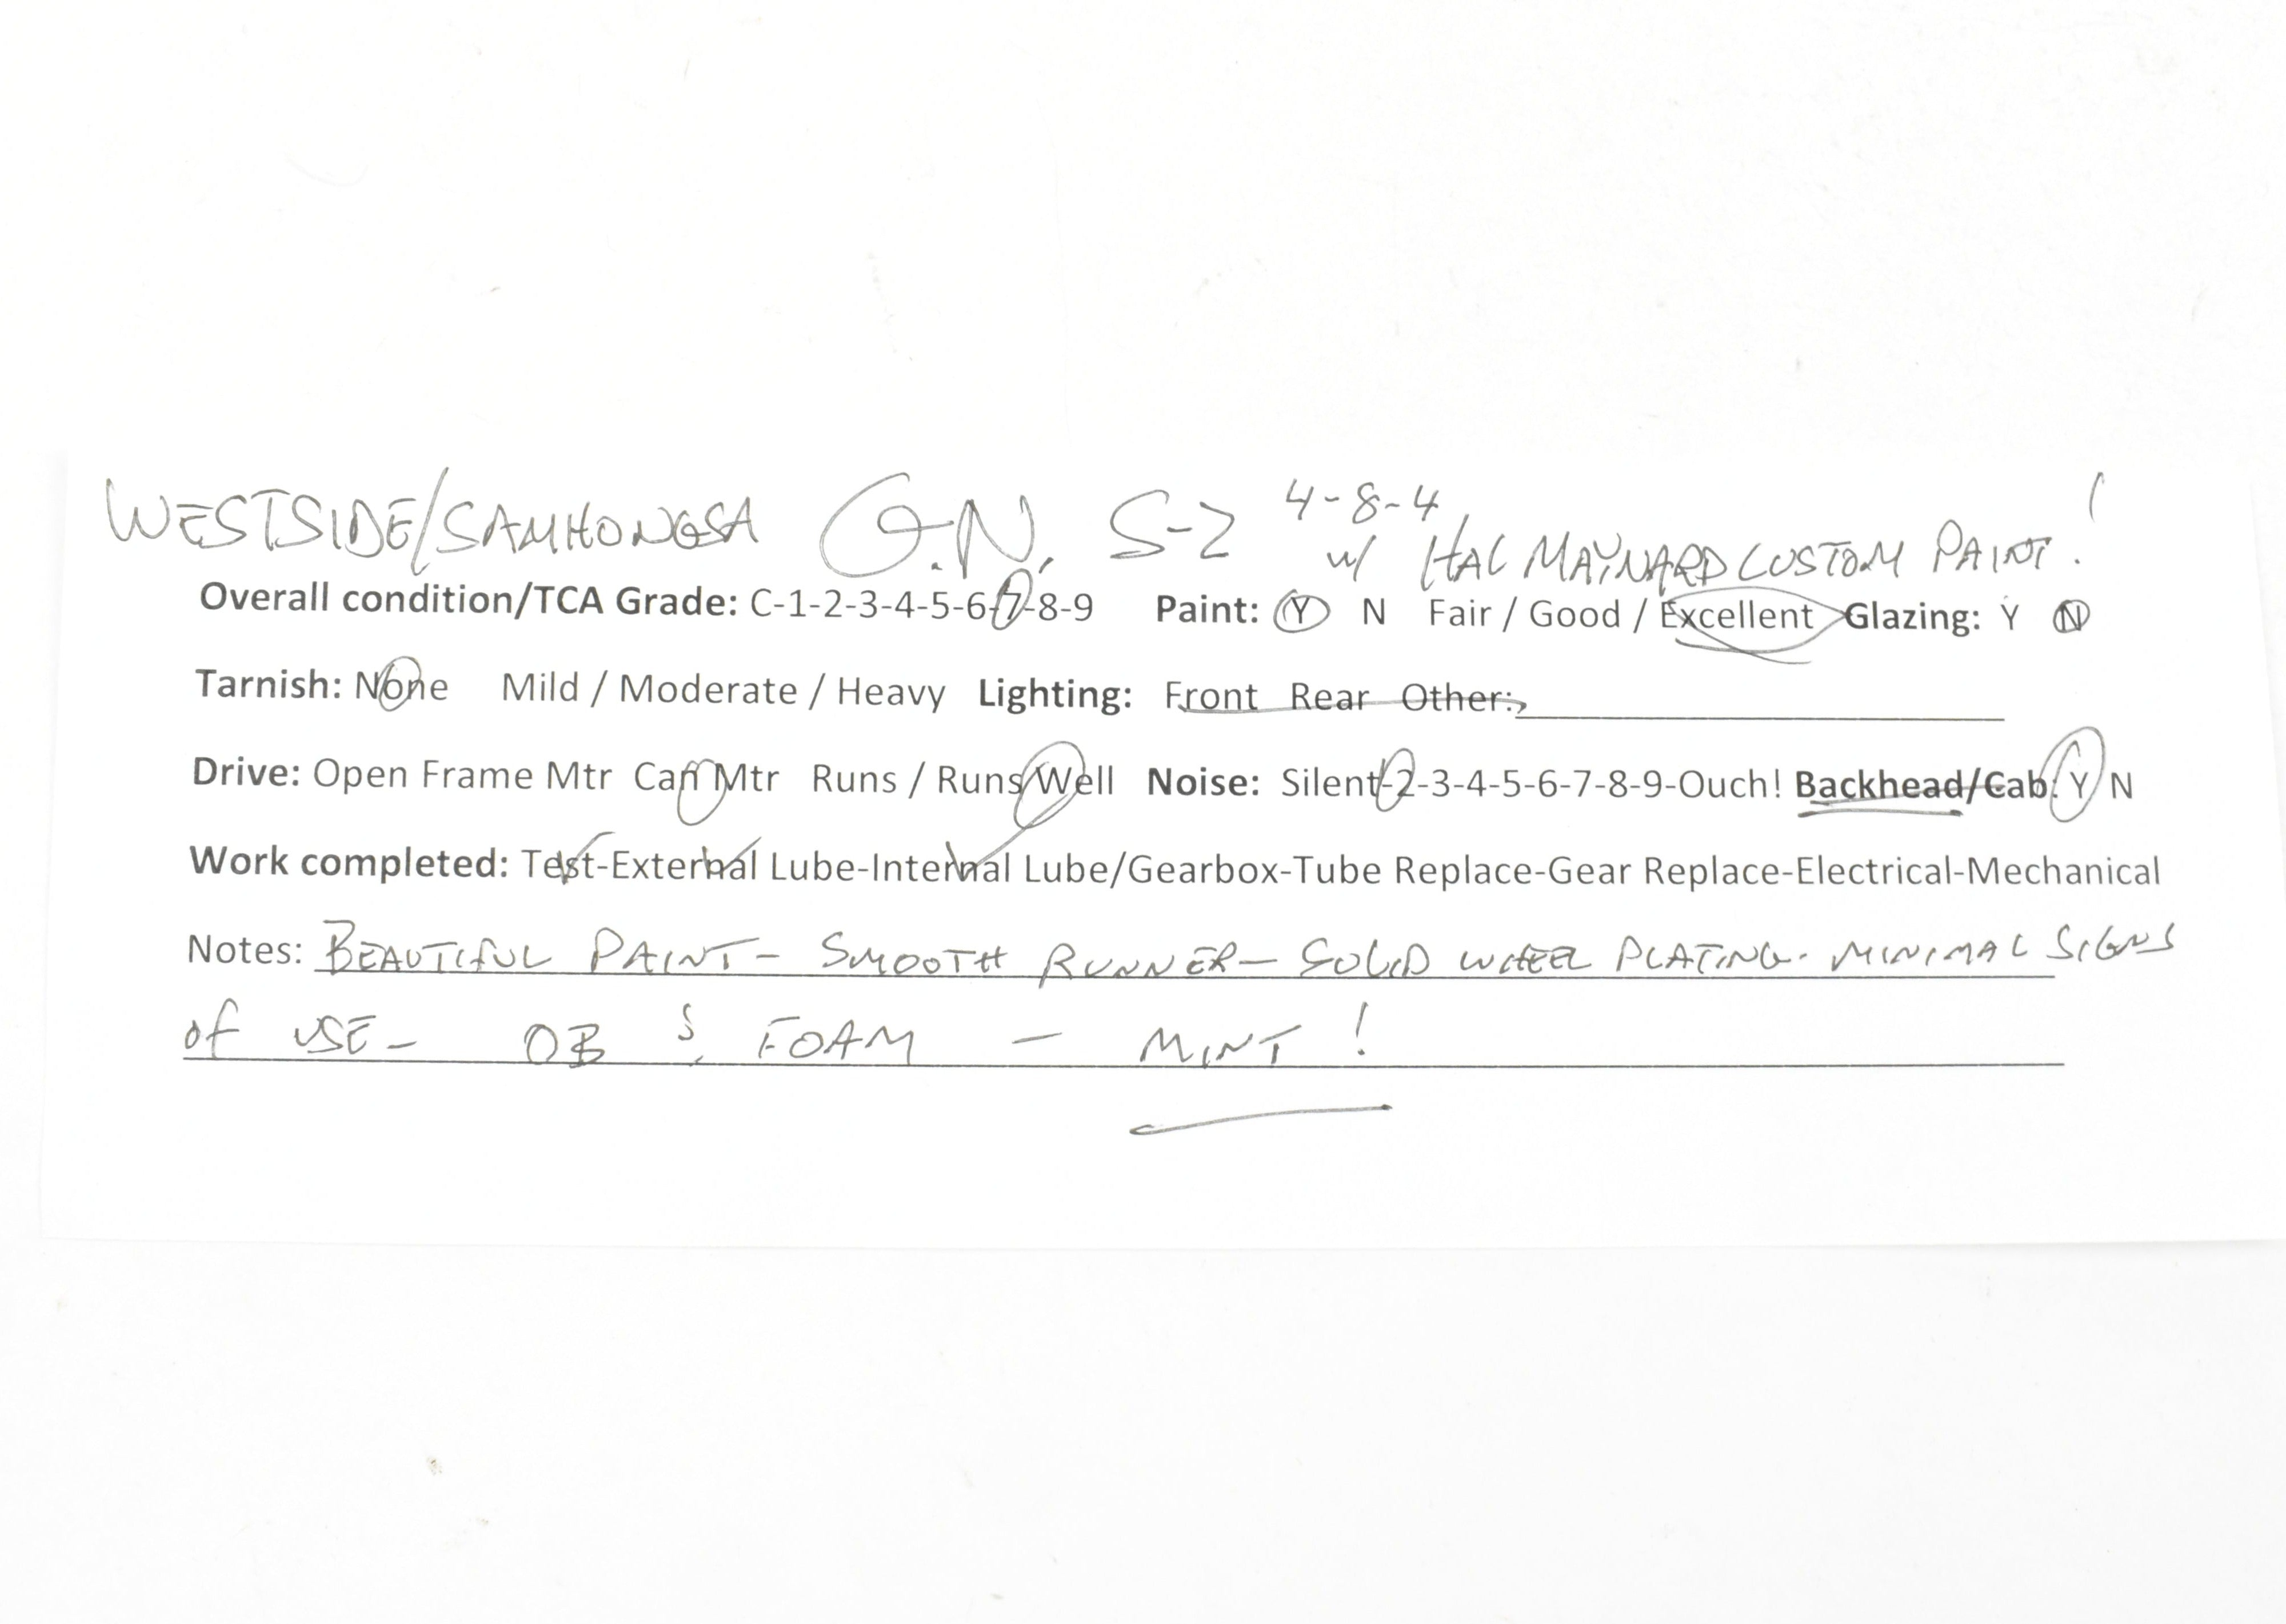 WESTSIDE/SAMHONGSA G.N. S-2 4-8-4 w/ HAL MAYNARD CUSTOM PAINT!
Overall condition/TCA Grade: C-1-2-3-4-5-6-7-8-9 Paint: Y N Fair / Good / Excellent Glazing: Y N
Tarnish: None Mild / Moderate / Heavy Lighting: Front Rear Other:
Drive: Open Frame Mtr Can Mtr Runs / Runs Well Noise: Silent-2-3-4-5-6-7-8-9-Ouch! Backhead/Cab: Y N
Work completed: Test-External Lube-Internal Lube/Gearbox-Tube Replace-Gear Replace-Electrical-Mechanical
Notes: BEAUTIFUL PAINT - SMOOTH RUNNER - SOLID WHEEL PLATING. MINIMAL SIGNS
of USE - OB & FOAM - MINT!